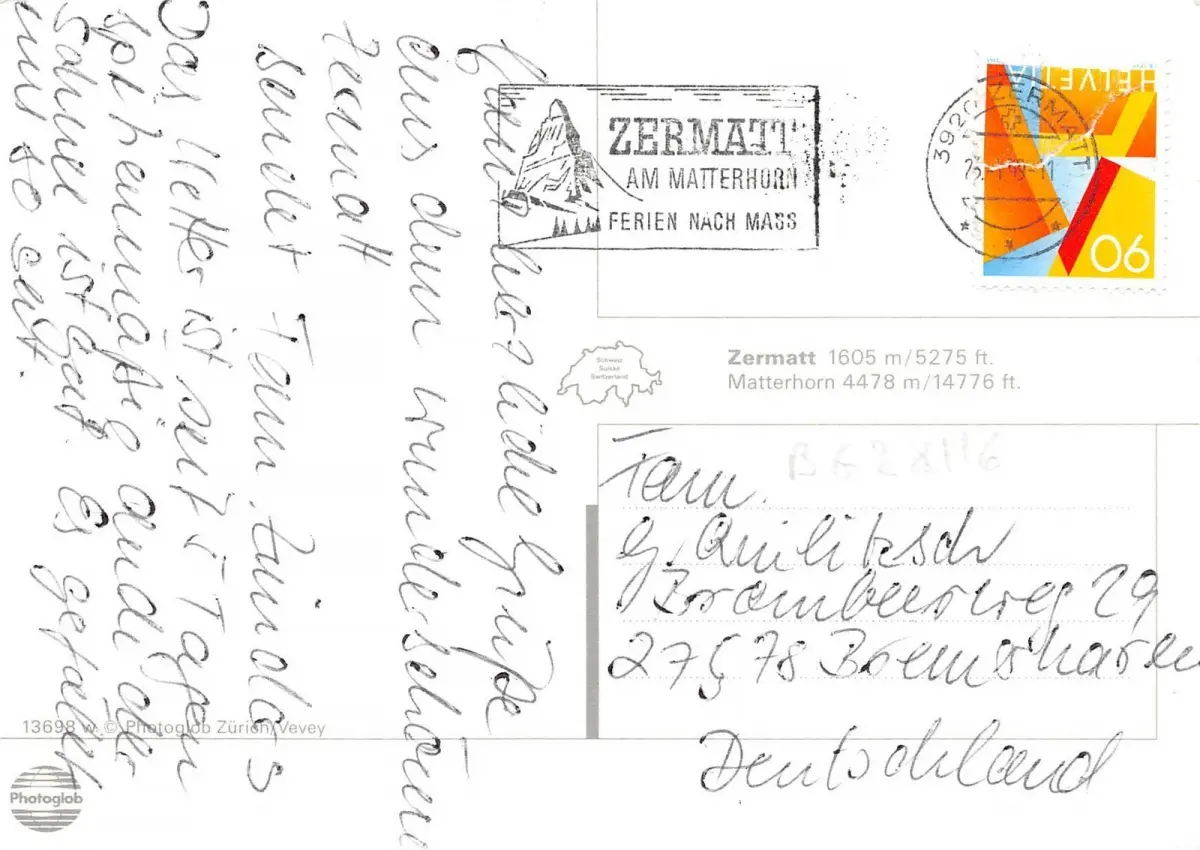 ZERMATT
AM MATTERHORN
FERIEN NACH MASS
3920 ZERMATT
HELVETIA
90
Schweiz
Suisse
Switzerland
Zermatt 1605 m/5275 ft.
Matterhorn 4478 m/14776 ft.
Ganz herzliche Grüße
aus dem wunderschönen
Zermatt
sendet Fam.
Das Wetter ist seit Tagen
spitzenmäßig auch der
Schnee ist gut. Es gefällt
uns so
Fam.
G. Quilitzsch
Brombeerweg 29
27578 Bremerhaven
Deutschland
13698 w © Photoglob Zürich/Vevey
Photoglob